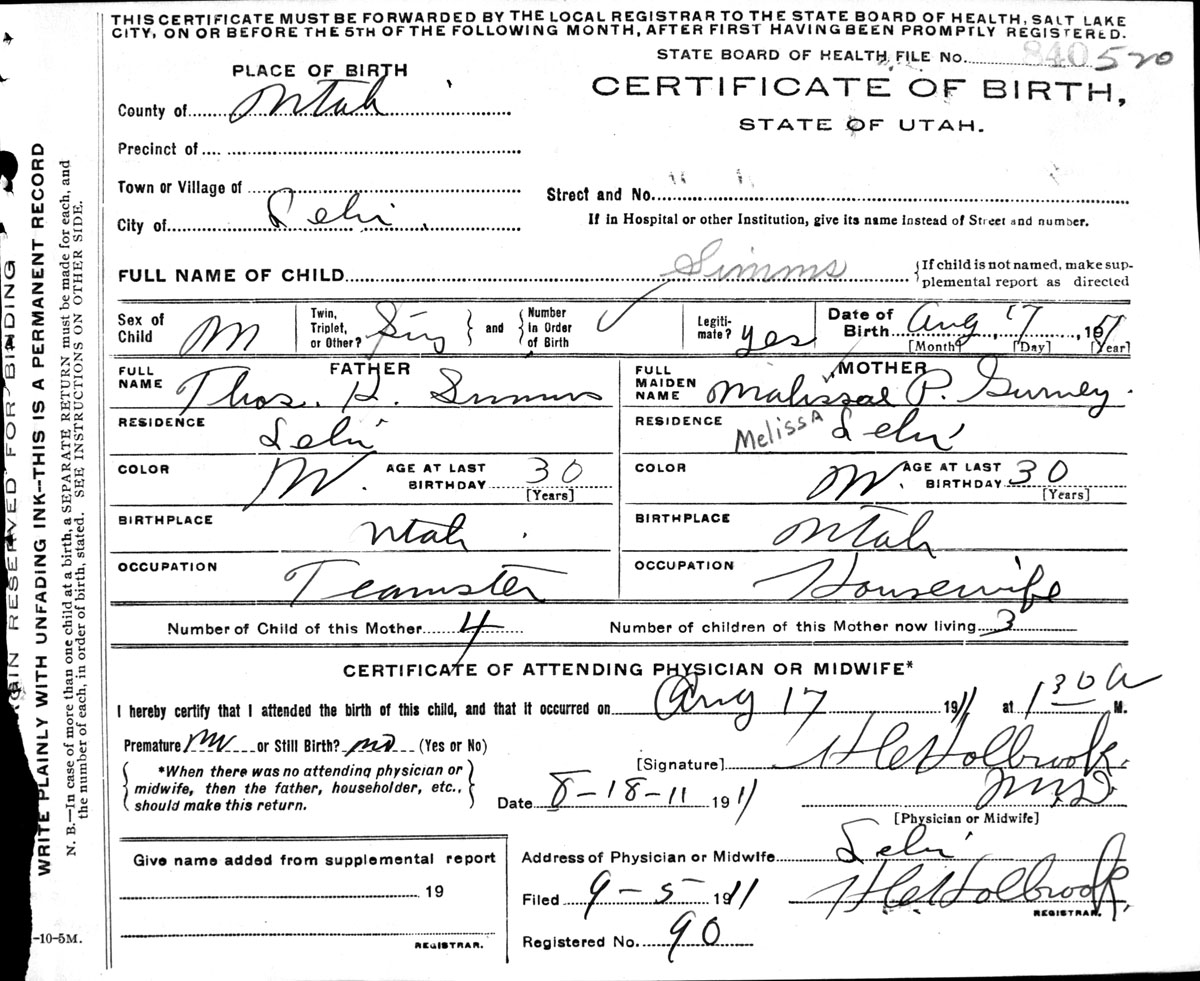 THIS CERTIFICATE MUST BE FORWARDED BY THE LOCAL REGISTRAR TO THE STATE BOARD OF HEALTH, SALT LAKE
CITY, ON OR BEFORE THE 5TH OF THE FOLLOWING MONTH, AFTER FIRST HAVING BEEN PROMPTLY REGISTERED.
STATE BOARD OF HEALTH FILE No. 840 520
PLACE OF BIRTH
CERTIFICATE OF BIRTH,
STATE OF UTAH.
County of Utah
Precinct of
Town or Village of
Street and No.
City of Lehi
If in Hospital or other Institution, give its name instead of Street and number.
FULL NAME OF CHILD Simms
If child is not named, make sup-
plemental report as directed
Sex of Child M
Twin, Triplet, or Other? Sing and Number in Order of Birth
Legiti-mate? yes
Date of Birth Aug, 17, 1911
[Month] [Day] [Year]
FATHER
FULL NAME Thos. R. Simms
MOTHER
FULL MAIDEN NAME Malissal P. Gurney
RESIDENCE Lehi
RESIDENCE Melissa Lehi
COLOR W. AGE AT LAST BIRTHDAY 30 [Years]
COLOR W. AGE AT LAST BIRTHDAY 30 [Years]
BIRTHPLACE Utah
BIRTHPLACE Utah
OCCUPATION Teamster
OCCUPATION Housewife
Number of Child of this Mother 4 Number of children of this Mother now living 3
CERTIFICATE OF ATTENDING PHYSICIAN OR MIDWIFE*
I hereby certify that I attended the birth of this child, and that it occurred on Aug 17 1911 at 130 A M.
Premature no or Still Birth? no (Yes or No)
[Signature] H C Holbrook.
*When there was no attending physician or
midwife, then the father, householder, etc.,
should make this return.
Date 8-18-11 1911 M.D.
[Physician or Midwife]
Give name added from supplemental report
19
REGISTRAR.
Address of Physician or Midwife Lehi
Filed 9-5 1911 H C Holbrook,
REGISTRAR.
Registered No. 90
-10-5M.
GIN RESERVED FOR BINDING
WRITE PLAINLY WITH UNFADING INK--THIS IS A PERMANENT RECORD
N. B.—In case of more than one child at a birth, a SEPARATE RETURN must be made for each, and
the number of each, in order of birth, stated. SEE INSTRUCTIONS ON OTHER SIDE.